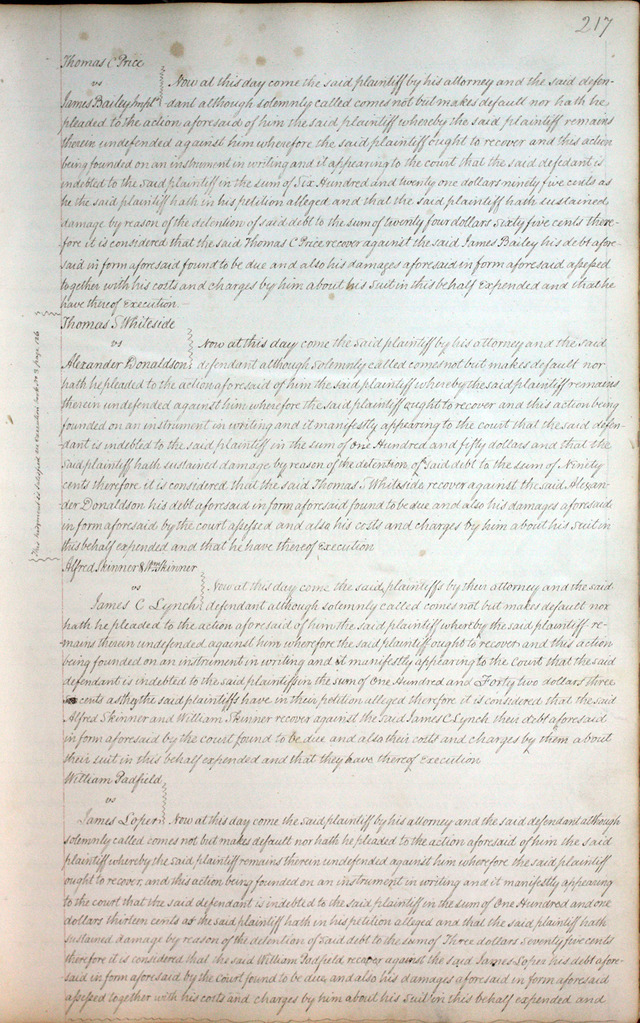 217
Thomas C Price
vs
James Bailey impld
Now at this day come the said plaintiff by his attorney and the said defen-
dant although solemnly called comes not but makes default nor hath he
pleaded to the action aforesaid of him the said plaintiff whereby the said plaintiff remains
therein undefended against him wherefore the said plaintiff ought to recover and this action
being founded on an instrument in writing and it appearing to the court that the said defedant is
indebted to the said plaintiff in the sum of Six Hundred and twenty one dollars ninety five cents as
he the said plaintiff hath in his petition alleged and that the said plaintiff hath sustained
damage by reason of the detention of said debt to the sum of twenty four dollars sixty five cents there-
fore it is considered that the said Thomas C Price recover against the said James Bailey his debt afore-
said in form aforesaid found to be due and also his damages aforesaid in form aforesaid assessed
together with his costs and charges by him about his Suit in this behalf Expended and that he
have thereof Execution
Thomas S Whiteside
vs
Alexander Donaldson
Now at this day come the said plaintiff by his attorney and the said
defendant although solemnly called comes not but makes default nor
hath he pleaded to the action aforesaid of him the said plaintiff whereby the said plaintiff remains
therein undefended against him wherefore the said plaintiff ought to recover and this action being
founded on an instrument in writing and it manifestly appearing to the court that the said defen-
dant is indebted to the said plaintiff in the sum of One Hundred and fifty dollars and that the
said plaintiff hath sustained damage by reason of the detention of said debt to the sum of Ninety
cents therefore it is considered that the said Thomas S Whiteside recover against the said Alexan-
der Donaldson his debt aforesaid in form aforesaid found to be due and also his damages aforesaid
in form aforesaid by the court assessed and also his costs and charges by him about his Suit in
this behalf expended and that he have thereof Execution
This judgment is satisfied on execution page 126
Alfred Skinner & Wm Skinner
vs
James C Lynch
Now at this day come the said plaintiffs by their attorney and the said
defendant although solemnly called comes not but makes default nor
hath he pleaded to the action aforesaid of him the said plaintiff whereby the said plaintiff re-
mains therein undefended against him wherefore the said plaintiff ought to recover and this action
being founded on an instrument in writing and it manifestly appearing to the Court that the said
defendant is indebted to the said plaintiffs in the sum of One Hundred and Forty two dollars three
cents as they the said plaintiffs have in their petition alleged therefore it is considered that the said
Alfred Skinner and William Skinner recover against the said James C Lynch their debt aforesaid
in form aforesaid by the court found to be due and also their costs and charges by them about
their suit in this behalf expended and that they have thereof Execution
William Padfield
vs
James Loper
Now at this day come the said plaintiff by his attorney and the said defendant although
solemnly called comes not but makes default nor hath he pleaded to the action aforesaid of him the said
plaintiff whereby the said plaintiff remains therein undefended against him wherefore the said plaintiff
ought to recover, and this action being founded on an instrument in writing and it manifestly appearing
to the court that the said defendant is indebted to the said plaintiff in the sum of One Hundred and one
dollars thirteen cents as the said plaintiff hath in his petition alleged and that the said plaintiff hath
sustained damage by reason of the detention of said debt to the sum of Three dollars seventy five cents
therefore it is considered that the said William Padfield recover against the said James Loper his debt afore-
said in form aforesaid by the Court found to be due, and also his damages aforesaid in form aforesaid
assessed together with his costs and charges by him about his Suit in this behalf expended and